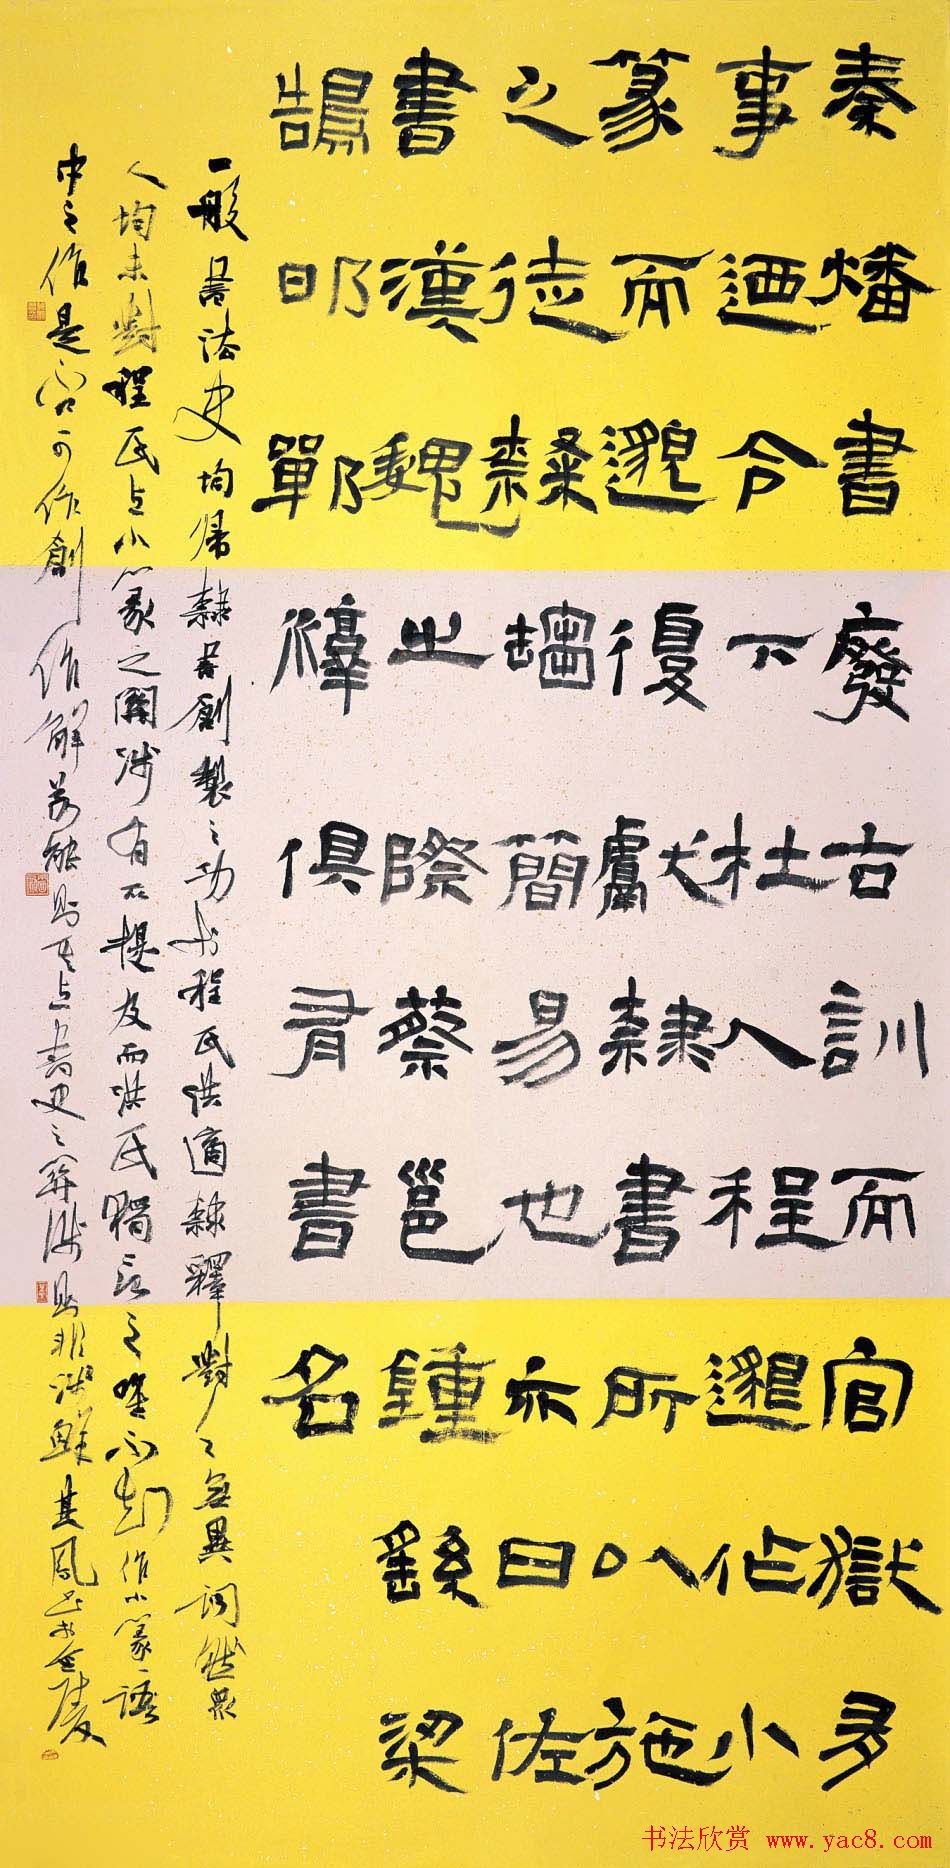 秦燔書廢古訓而官獄多
事迺令下杜人程邈作小
篆而邈復獻隸書所以施
之徒隸趨簡易也亦曰佐
書漢魏之際蔡邕鍾繇梁
鵠邯鄲淳俱有書名
一般書法史均歸隸書創製之功於程氏洪適隸釋對之無異詞然眾
人均未對程氏與小篆之關涉有所提及而洪氏獨言之唯不知作小篆語
中之作是否可作創作解若能則其與書史之關涉則非淺鮮其鳳書於金陵
书法欣赏 www.yac8.com